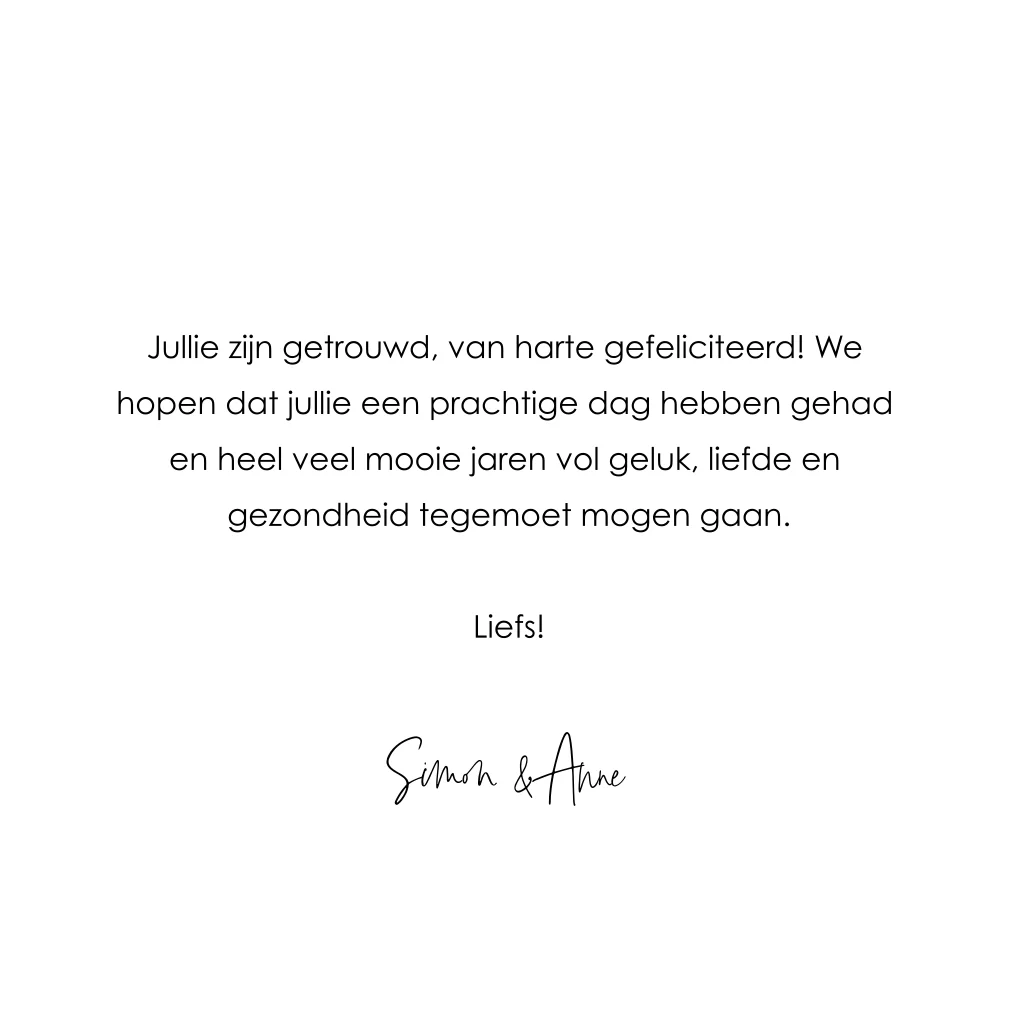 Jullie zijn getrouwd, van harte gefeliciteerd! We
hopen dat jullie een prachtige dag hebben gehad
en heel veel mooie jaren vol geluk, liefde en
gezondheid tegemoet mogen gaan.
Liefs!
Simon & Anne